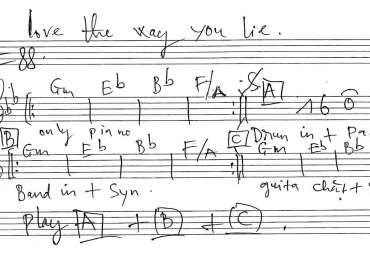 love the way you lie.
88.
Gm Eb Bb F/A A 16
B only piano C Drum in + Pa
Gm Eb Bb F/A Gm Eb Bb
Band in + Syn. guita chat +
Play A + B + C.